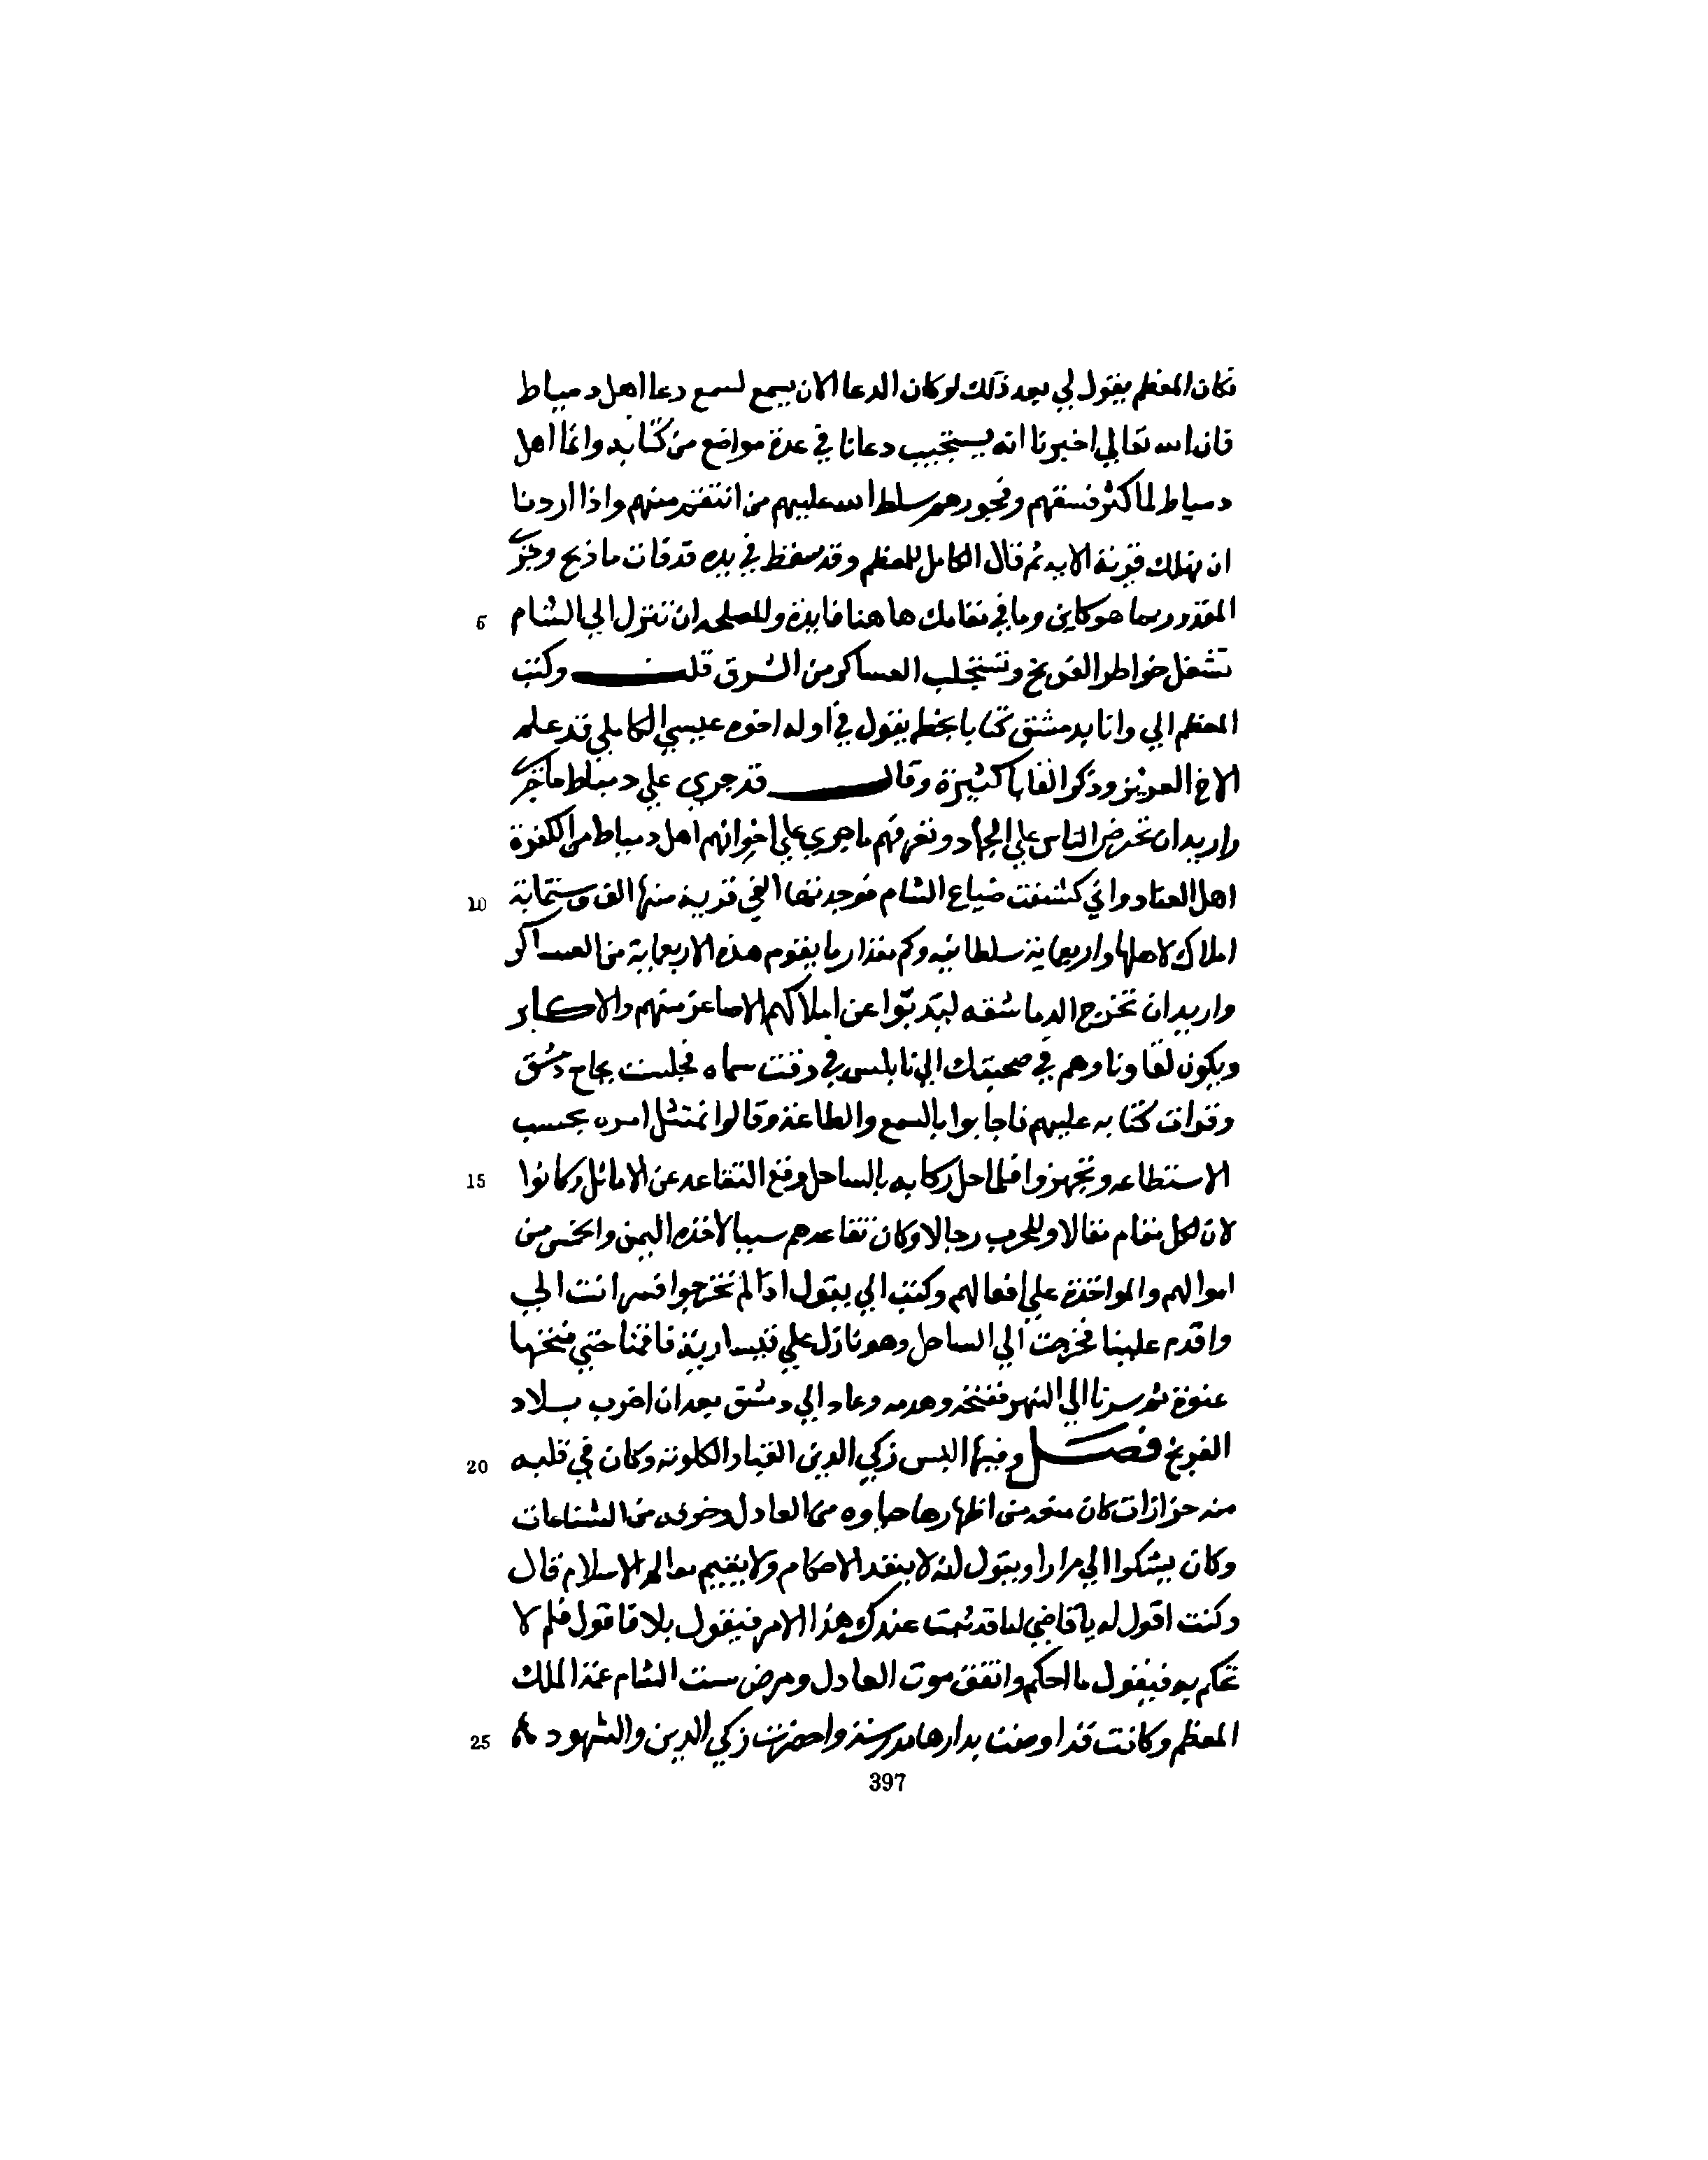 فكان المعظم يقول لي بعد ذلك لو كان الدعا الان يسمع لسمع دعا اهل دمياط
فان الله تعالي اخبرنا انه يستجيب دعانا في عدة مواضع من كتابه وانما اهل
دمياط لما كثر فسقهم وفجورهم سلط الله عليهم من انتقم منهم واذا اردنا
ان نهلك قرية الايه ثم قال الكامل للمعظم وقد سقط في يده قد فات ما ذبح وجري
المقدور بما هو كاين وما في مقامك هاهنا فايدة والمصلحه ان تنزل الي الشام
5
تشغل خواطر الفرنج وتستجلب العساكر من الشرق قلت وكتب
المعظم الي وانا بدمشق كتابا بخطه يقول في اوله اخوه عيسي الكاملي قد علم
الاخ العزيز وذكر القابا كثيرة وقال قد جري علي دمياط ما جري
واريد ان تحرض الناس علي الجهاد وتعرفهم ما جري علي اخوانهم اهل دمياط من الكفرة
اهل العناد واني كشفت ضياع الشام فوجدتها الفي قرية منها الف وستماية
10
املاك لاهلها واربعماية سلطانيه وكم مقدار ما يقوم هذه الاربعماية من العساكر
واريد ان تخرج الدماشقه ليذبوا عن املاكهم الاصاغر منهم والاكابر
ويكون لقاونا وهم في صحبتك الي نابلس في وقت سماه فجلست بجامع دمشق
وقرات كتابه عليهم فاجابوا بالسمع والطاعة وقالوا نمتثل امره بحسب
الاستطاعه وتجهزوا فلما حل ركابه بالساحل وقع التقاعد عن الاماثل وكانوا
15
لان لكل مقام مقالا وللحرب رجالا وكان تقاعدهم سببا لاخذه الثمن والخمس من
اموالهم والمواخذة علي افعالهم وكتب الي يقول اذا لم تخرجوا فسر انت الي
واقدم علينا فخرجت الي الساحل وهو نازل علي قيسارية فاقمنا حتي فتحها
عنوة ثم سرنا الي النهر ففتحه وهدمه وعاد الي دمشق بعد ان اخرب بلاد
الفرنج فصل وفيها البس زكي الدين القبا والكلوته وكان في قلبه
20
منه حزازات كان يمنعه من اظهارها حياوه من العادل وخوفه من الشناعات
وكان يشكوا الي مرارا ويقول انه لا ينفذ الاحكام ولا يقيم معالم الاسلام قال
وكنت اقول له يا قاضي اما قد ثبت عندك هذا الامر فيقول بلا فاقول فلم لا
تحكم به فيقول ما احكم واتفق موت العادل ومرض ست الشام عمة الملك
المعظم وكانت قد اوصت بدارها مدرسة واحضرت زكي الدين والشهود
25
397